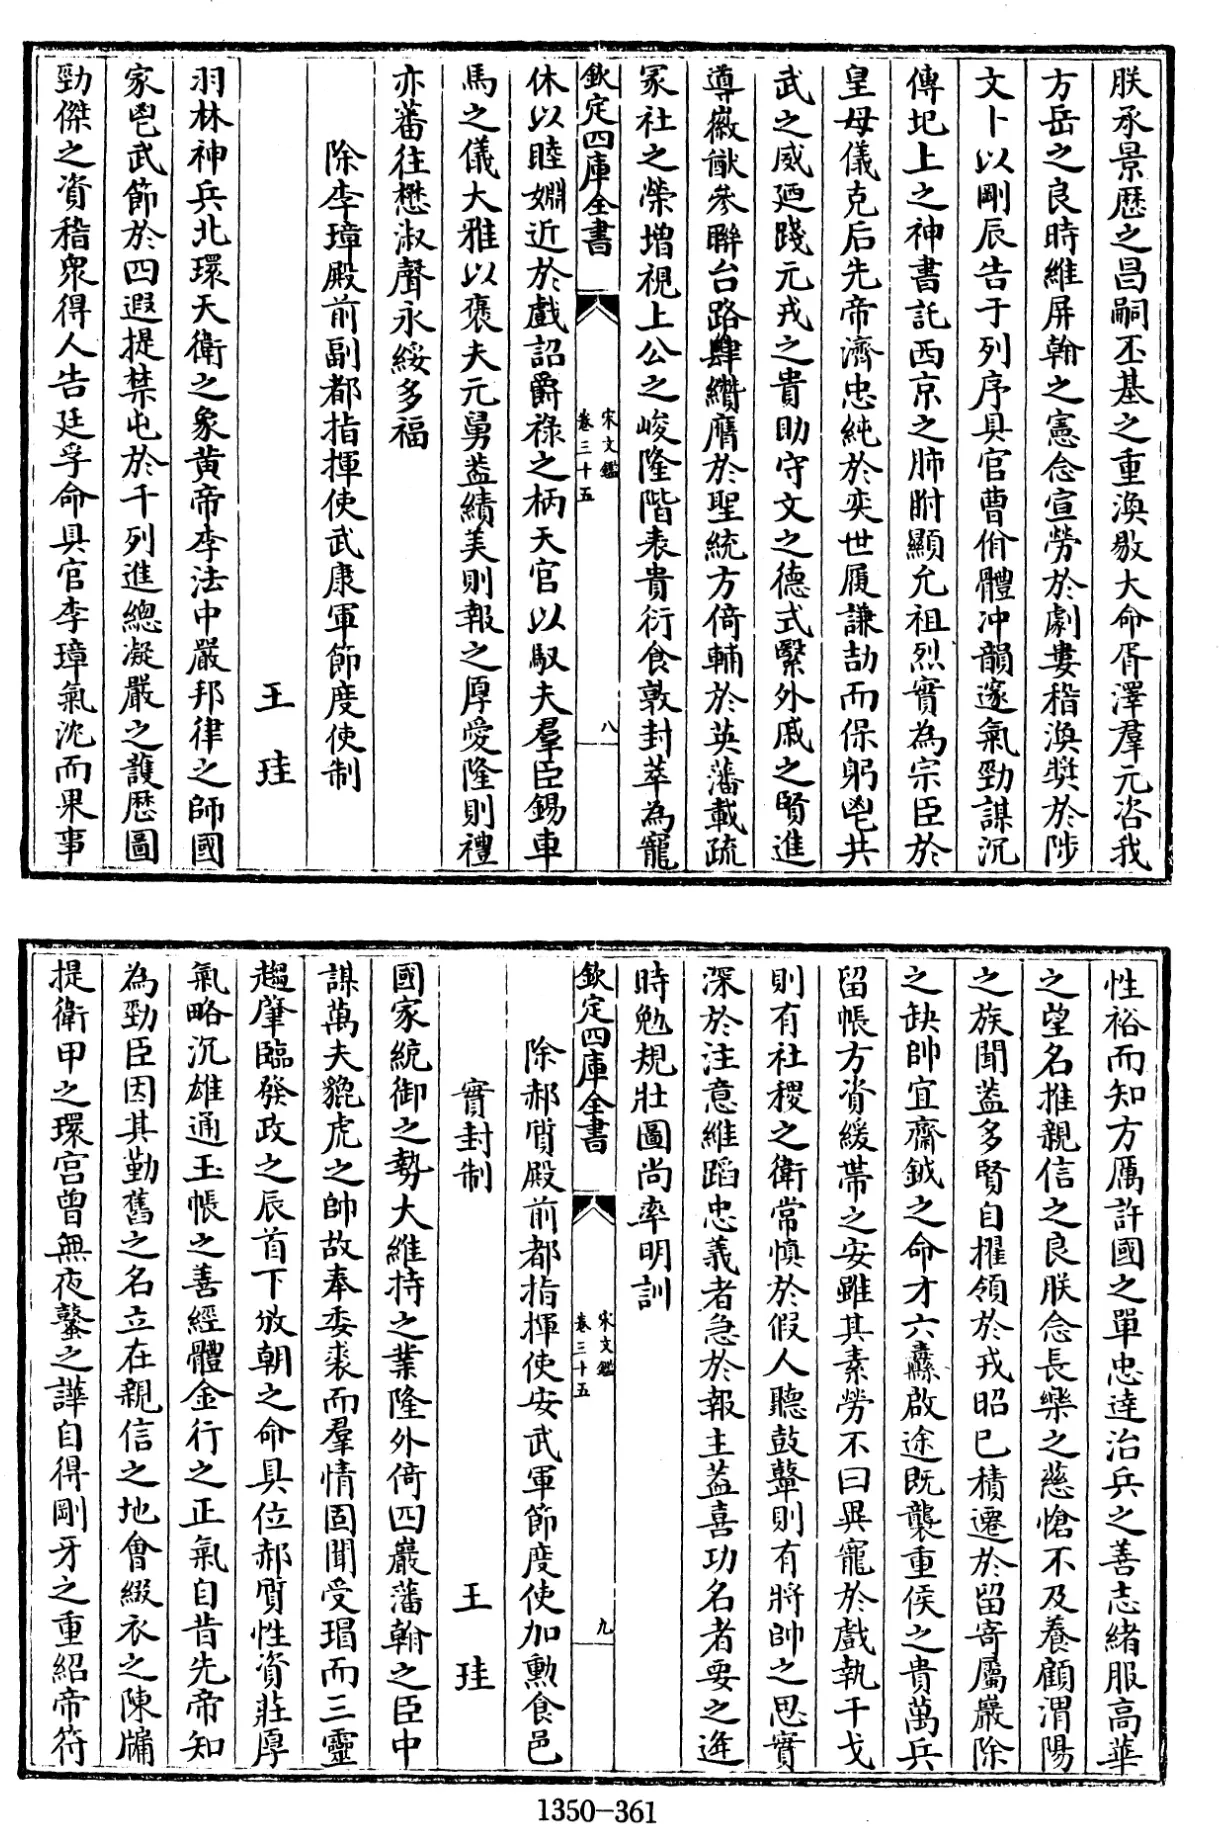 朕承景歴之昌嗣丕基之重渙敭大命胥澤羣元咨我
方岳之良時維屏翰之憲念宣勞於劇婁稽渙奬於陟
文卜以剛辰告于列序具官曹佾體冲韻邃氣勁謀沉
傳圯上之神書託西京之肺胕顯允祖烈實為宗臣於
皇母儀克后先帝濟忠純於奕世履謙劼而保躬鬯共
武之威廼踐元戎之貴助守文之德式繄外戚之賢進
遵徽猷參聨台路肆纘膺於聖統方倚輔於英藩載疏
冢社之榮增視上公之峻隆階表貴衍食敦封萃為寵
欽定四庫全書
宋文鑑
卷三十五
八
休以睦婣近於戲詔爵祿之柄天官以馭夫羣臣錫車
馬之儀大雅以襃夫元舅葢績美則報之厚愛隆則禮
亦蕃往懋淑聲永綏多福
除李璋殿前副都指揮使武康軍節度使制
王珪
羽林神兵北環天衛之象黄帝李法中嚴邦律之師國
家鬯武節於四遐提禁屯於千列進總凝嚴之護歴圖
勁傑之資稽衆得人告廷孚命具官李璋氣沈而果事
性裕而知方厲許國之單忠達治兵之善志緒服高華
之望名推親信之良朕念長樂之慈愴不及養顧渭陽
之族聞蓋多賢自擢領於戎昭已積遷於留寄屬巖除
之缺帥宜齋鉞之命才六纛啟途既襲重侯之貴萬兵
留帳方資緩帶之安雖其素勞不曰異寵於戲執干戈
則有社稷之衛常慎於假人聽鼓鼙則有將帥之思實
深於注意維蹈忠義者急於報主葢喜功名者要之逢
時勉規壯圖尚率明訓
欽定四庫全書
宋文鑑
卷三十五
九
除郝質殿前都指揮使安武軍節度使加勲食邑
實封制
王珪
國家統御之勢大維持之業隆外倚四嚴藩翰之臣中
謀萬夫貔虎之帥故奉委裘而羣情固聞受瑁而三靈
趨肇臨發政之辰首下攽朝之命具位郝質性資莊厚
氣略沉雄通玉帳之善經體金行之正氣自昔先帝知
為勁臣因其勤舊之名立在親信之地會綴衣之陳牖
提衛甲之環宫曾無夜鼜之譁自得剛牙之重紹帝符
1350-361